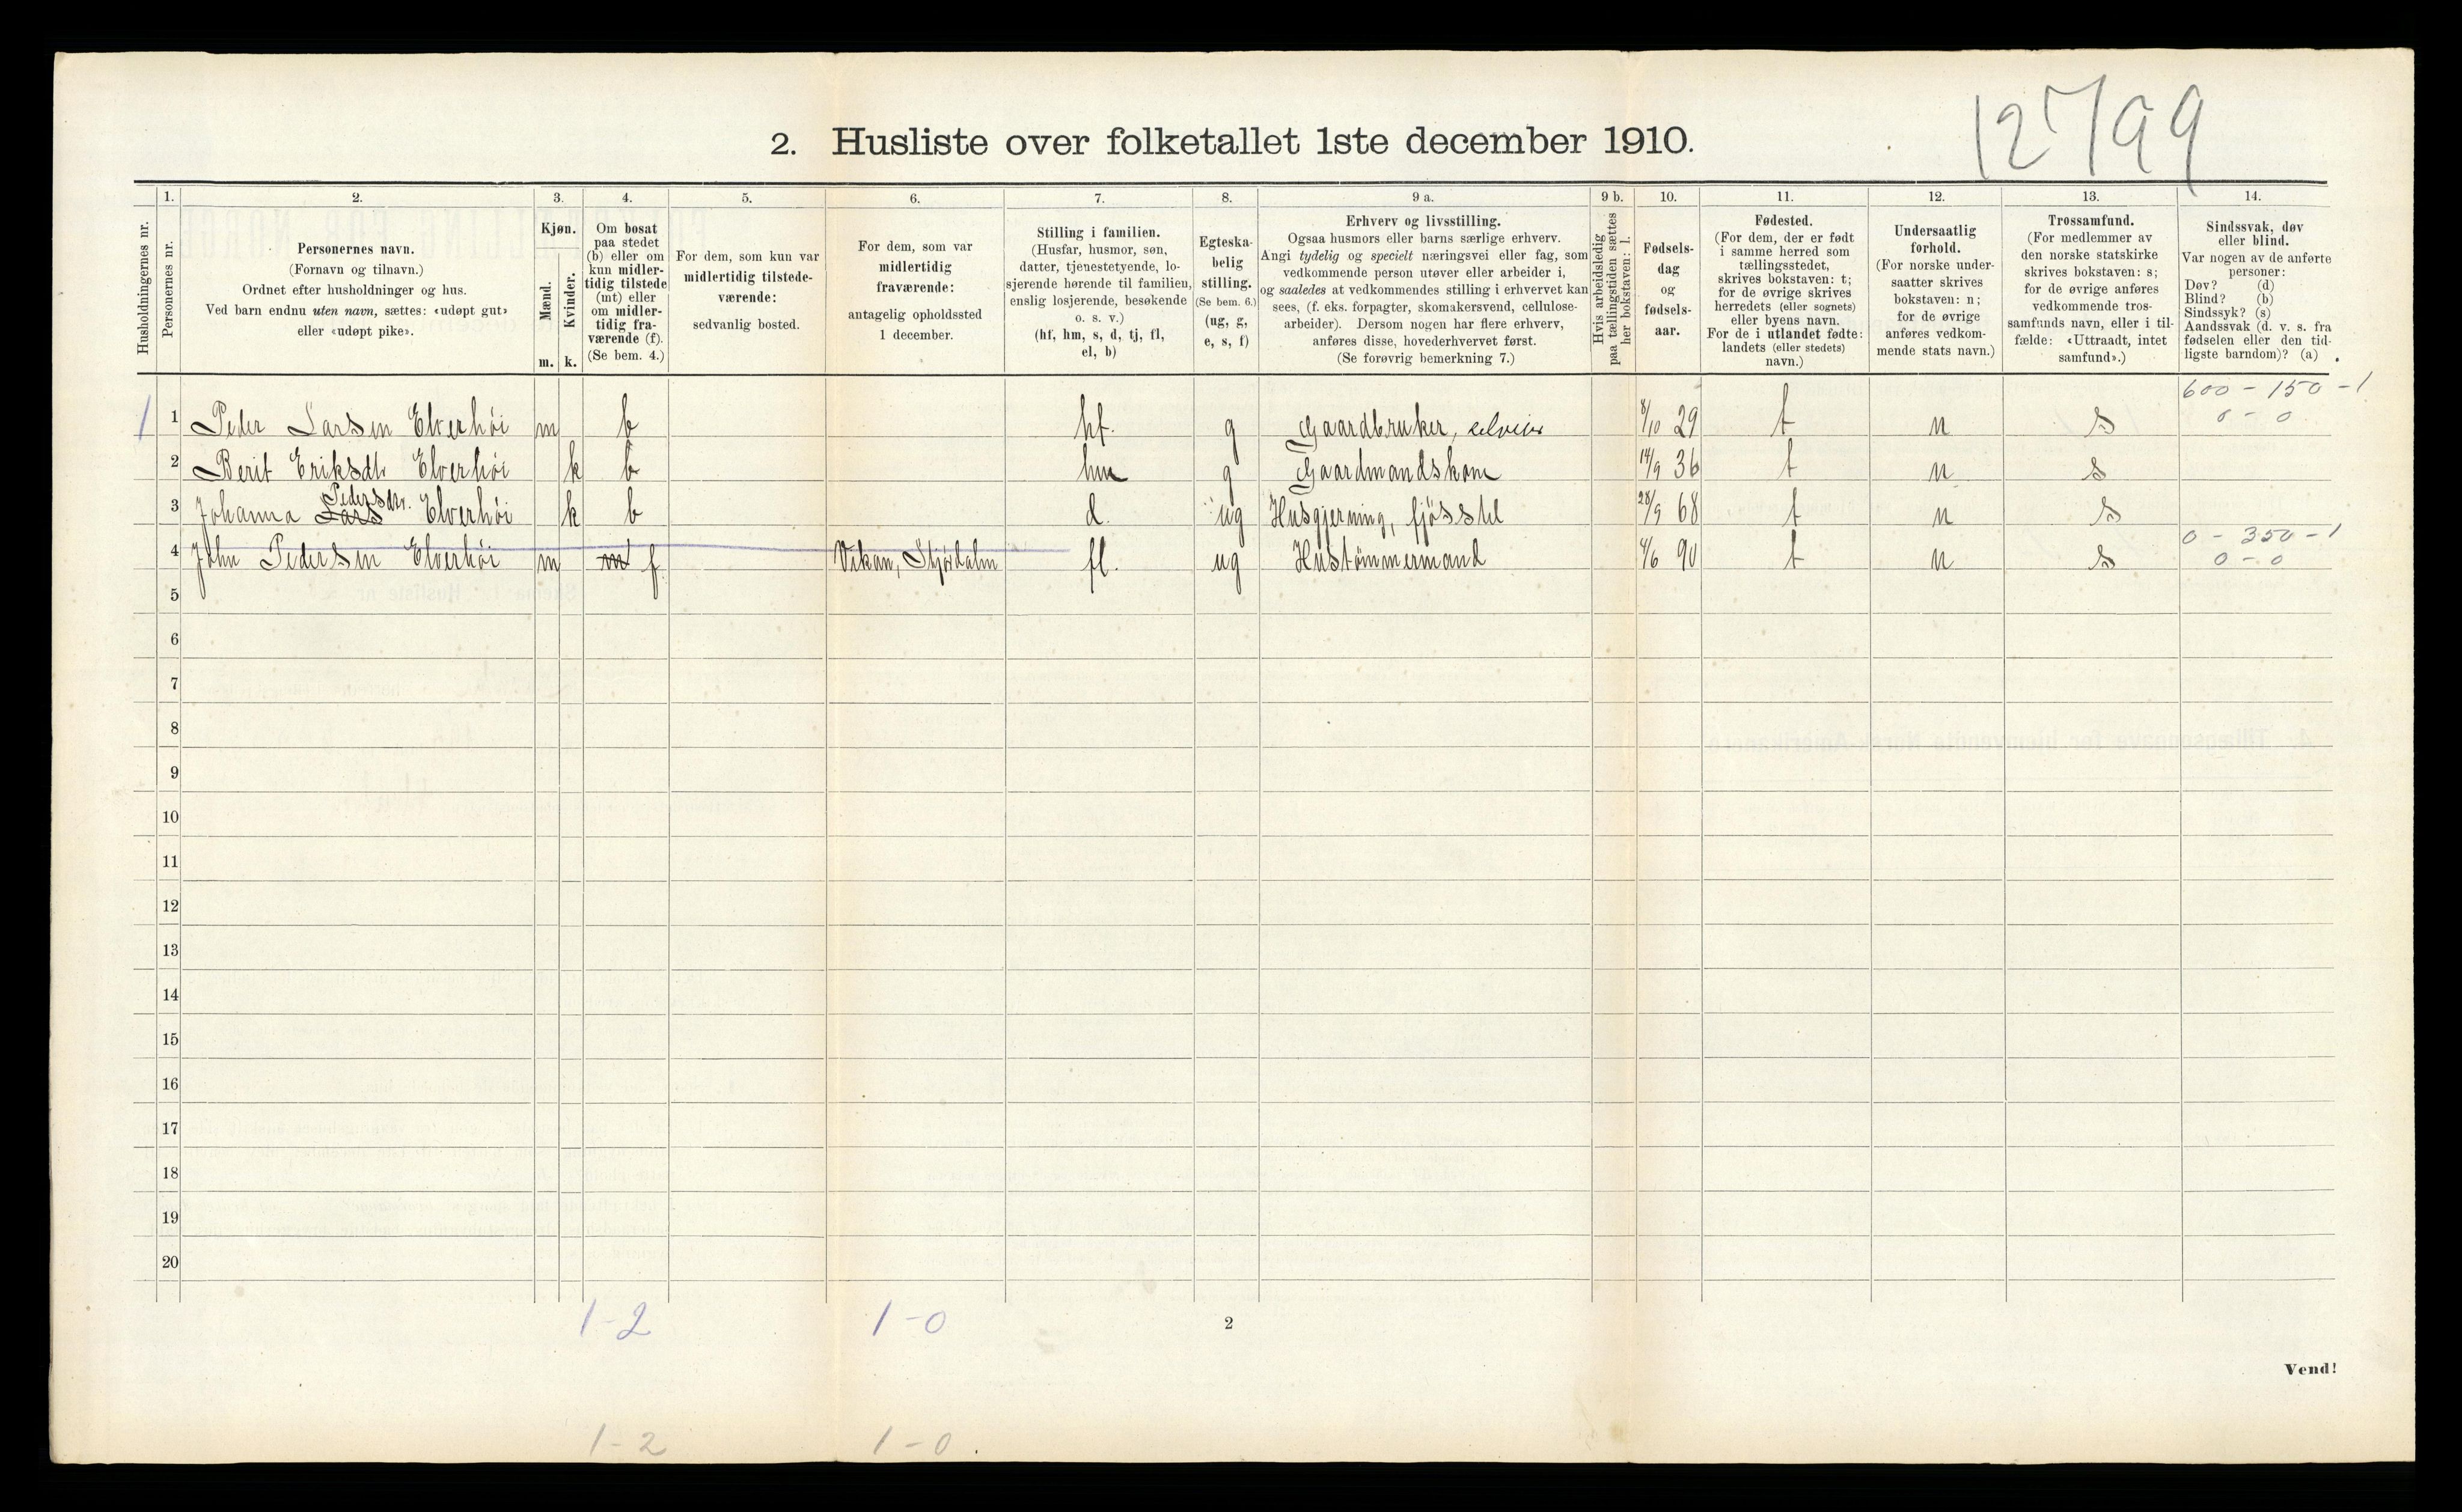 12799
2. Husliste over folketallet 1ste december 1910.
Husholdningernes nr.
1.
Personernes nr.
2.
Personernes navn.
(Fornavn og tilnavn.)
Ordnet efter husholdninger og hus.
Ved barn endnu uten navn, sættes: «udøpt gut»
eller «udøpt pike».
3.
Kjøn.
Mænd.
Kvinder.
m. k.
4.
Om bosat
paa stedet
(b) eller om
kun midler-
tidig tilstede
(mt) eller
om midler-
tidig fra-
værende (f).
(Se bem. 4.)
5.
For dem, som kun var
midlertidig tilstede-
værende:
sedvanlig bosted.
6.
For dem, som var
midlertidig
fraværende:
antagelig opholdssted
1 december.
7.
Stilling i familien.
(Husfar, husmor, søn,
datter, tjenestetyende, lo-
sjerende hørende til familien,
enslig losjerende, besøkende
o. s. v.)
(hf, hm, s, d, tj, fl,
el, b)
8.
Egteska-
belig
stilling.
(Se bem. 6.)
(ug, g,
e, s, f)
9 a.
Erhverv og livsstilling.
Ogsaa husmors eller barns særlige erhverv.
Angi tydelig og specielt næringsvei eller fag, som
vedkommende person utøver eller arbeider i,
og saaledes at vedkommendes stilling i erhvervet kan
sees, (f. eks. forpagter, skomakersvend, cellulose-
arbeider). Dersom nogen har flere erhverv,
anføres disse, hovederhvervet først.
(Se forøvrig bemerkning 7.)
9 b.
Hvis arbeidsledig
paa tællingstiden sættes
her bokstaven: l.
10.
Fødsels-
dag
og
fødsels-
aar.
11.
Fødested.
(For dem, der er født
i samme herred som
tællingsstedet,
skrives bokstaven: t;
for de øvrige skrives
herredets (eller sognets)
eller byens navn.
For de i utlandet fødte:
landets (eller stedets)
navn.)
12.
Undersaatlig
forhold.
(For norske under-
saatter skrives
bokstaven: n;
for de øvrige
anføres vedkom-
mende stats navn.)
13.
Trossamfund.
(For medlemmer av
den norske statskirke
skrives bokstaven: s;
for de øvrige anføres
vedkommende tros-
samfunds navn, eller i til-
fælde: «Uttraadt, intet
samfund».)
14.
Sindssvak, døv
eller blind.
Var nogen av de anførte
personer:
Døv? (d)
Blind? (b)
Sindssyk? (s)
Aandssvak (d. v. s. fra
fødselen eller den tid-
ligste barndom)? (a)
600 - 150 - 1
1 1 Peder Larsen Elverhöi m b hf. g Gaardbruker, selveier 8/10 29 t n s 0 - 0
2 Berit Eriksdtr Elverhöi k b hm g Gaardmandskone 14/9 36 t n s
Pedersdtr.
3 Johanna Lars Elverhöi k b d. ug Husgjerning, fjösstel 28/9 68 t n s
0 - 350 - 1
4 John Pedersen Elverhöi m mt f Vikan, Stjördalen fl. ug Hustömmermand 4/6 90 t n s 0 - 0
5
6
7
8
9
10
11
12
13
14
15
16
17
18
19
20
1 - 2 1 - 0
2
Vend!
1 - 2 1 - 0